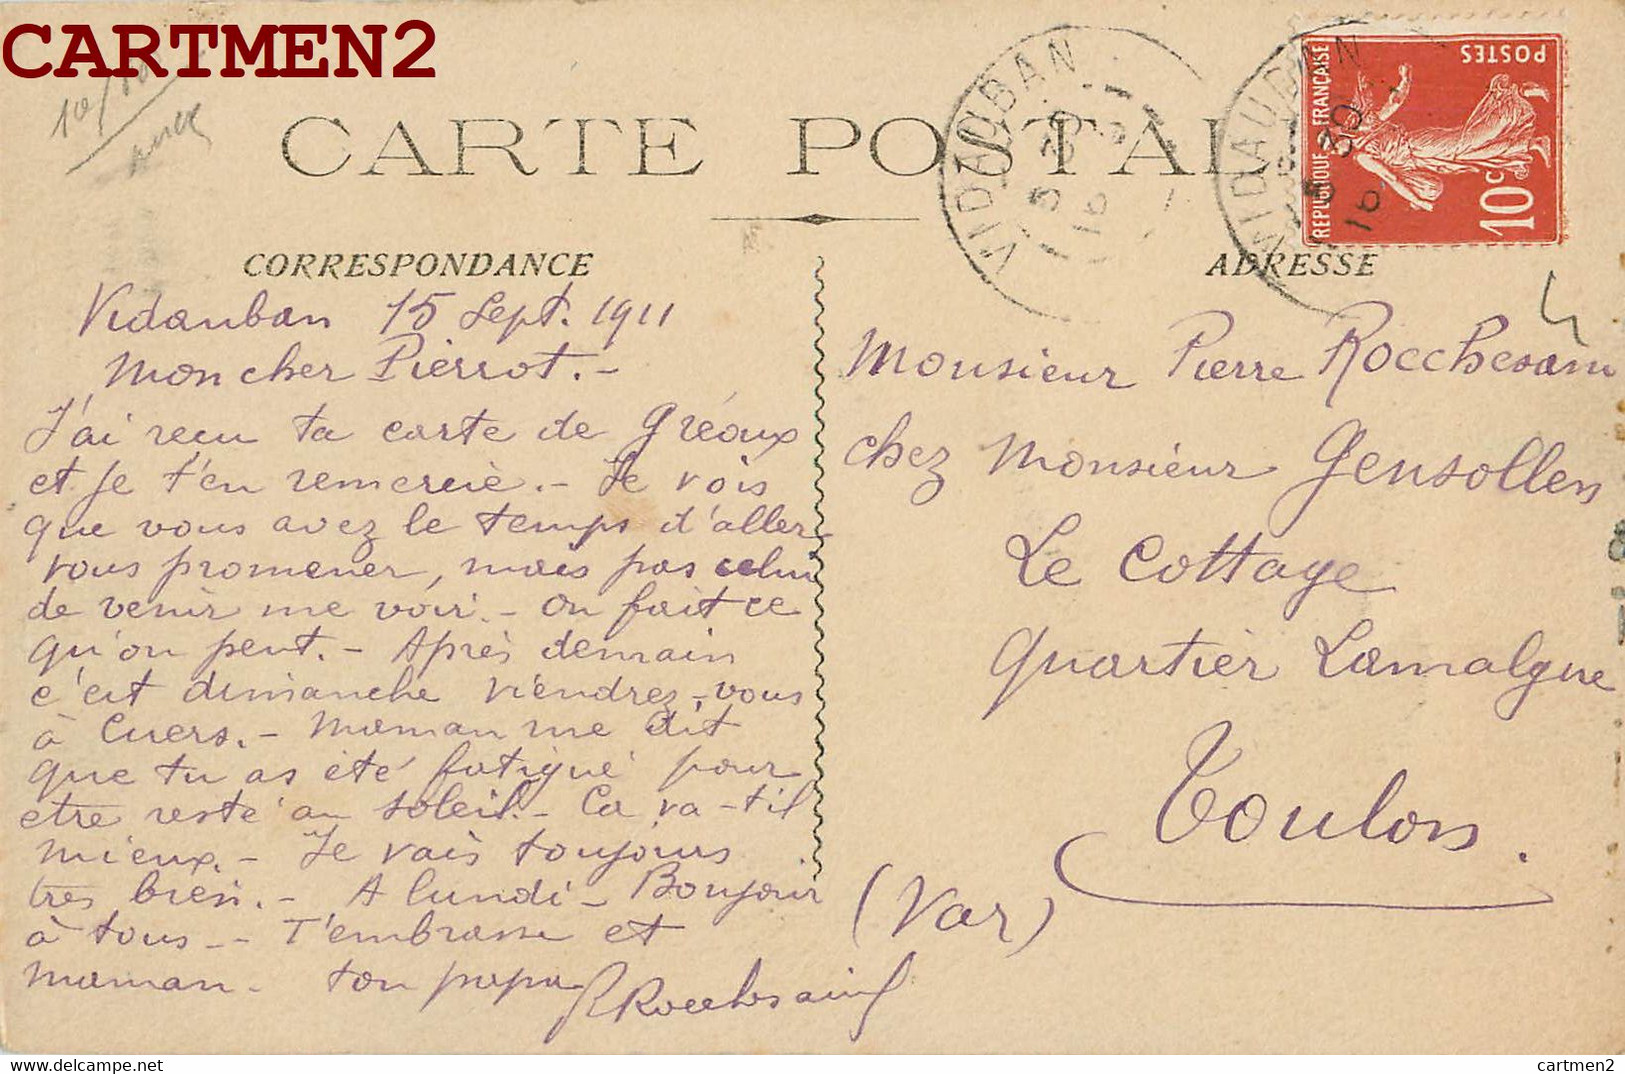 CARTMEN2
CARTE POSTALE
CORRESPONDANCE
ADRESSE
VIDAUBAN
VIDAUBAN
REPUBLIQUE FRANÇAISE
POSTES
10c
Vidauban 15 Sept. 1911
Mon cher Pierrot. -
J'ai reçu ta carte de Gréoux
et je t'en remercie. - Je vois
que vous avez le temps d'aller
vous promener, mais pas celui
de venir me voir. - On fait ce
qu'on peut. - Après demain
c'est dimanche viendrez-vous
à Cuers. - Maman me dit
que tu as été fatigué pour
etre resté au soleil. - Ca va-til
mieux. - Je vais toujours
tres bien. - A lundi - Bonjour
à tous - - T'embrasse et
maman - ton papa
Monsieur Pierre
chez Monsieur Gensollen
Le Cottage
Quartier Lamalgue
Toulon.
(Var)
cartmen2